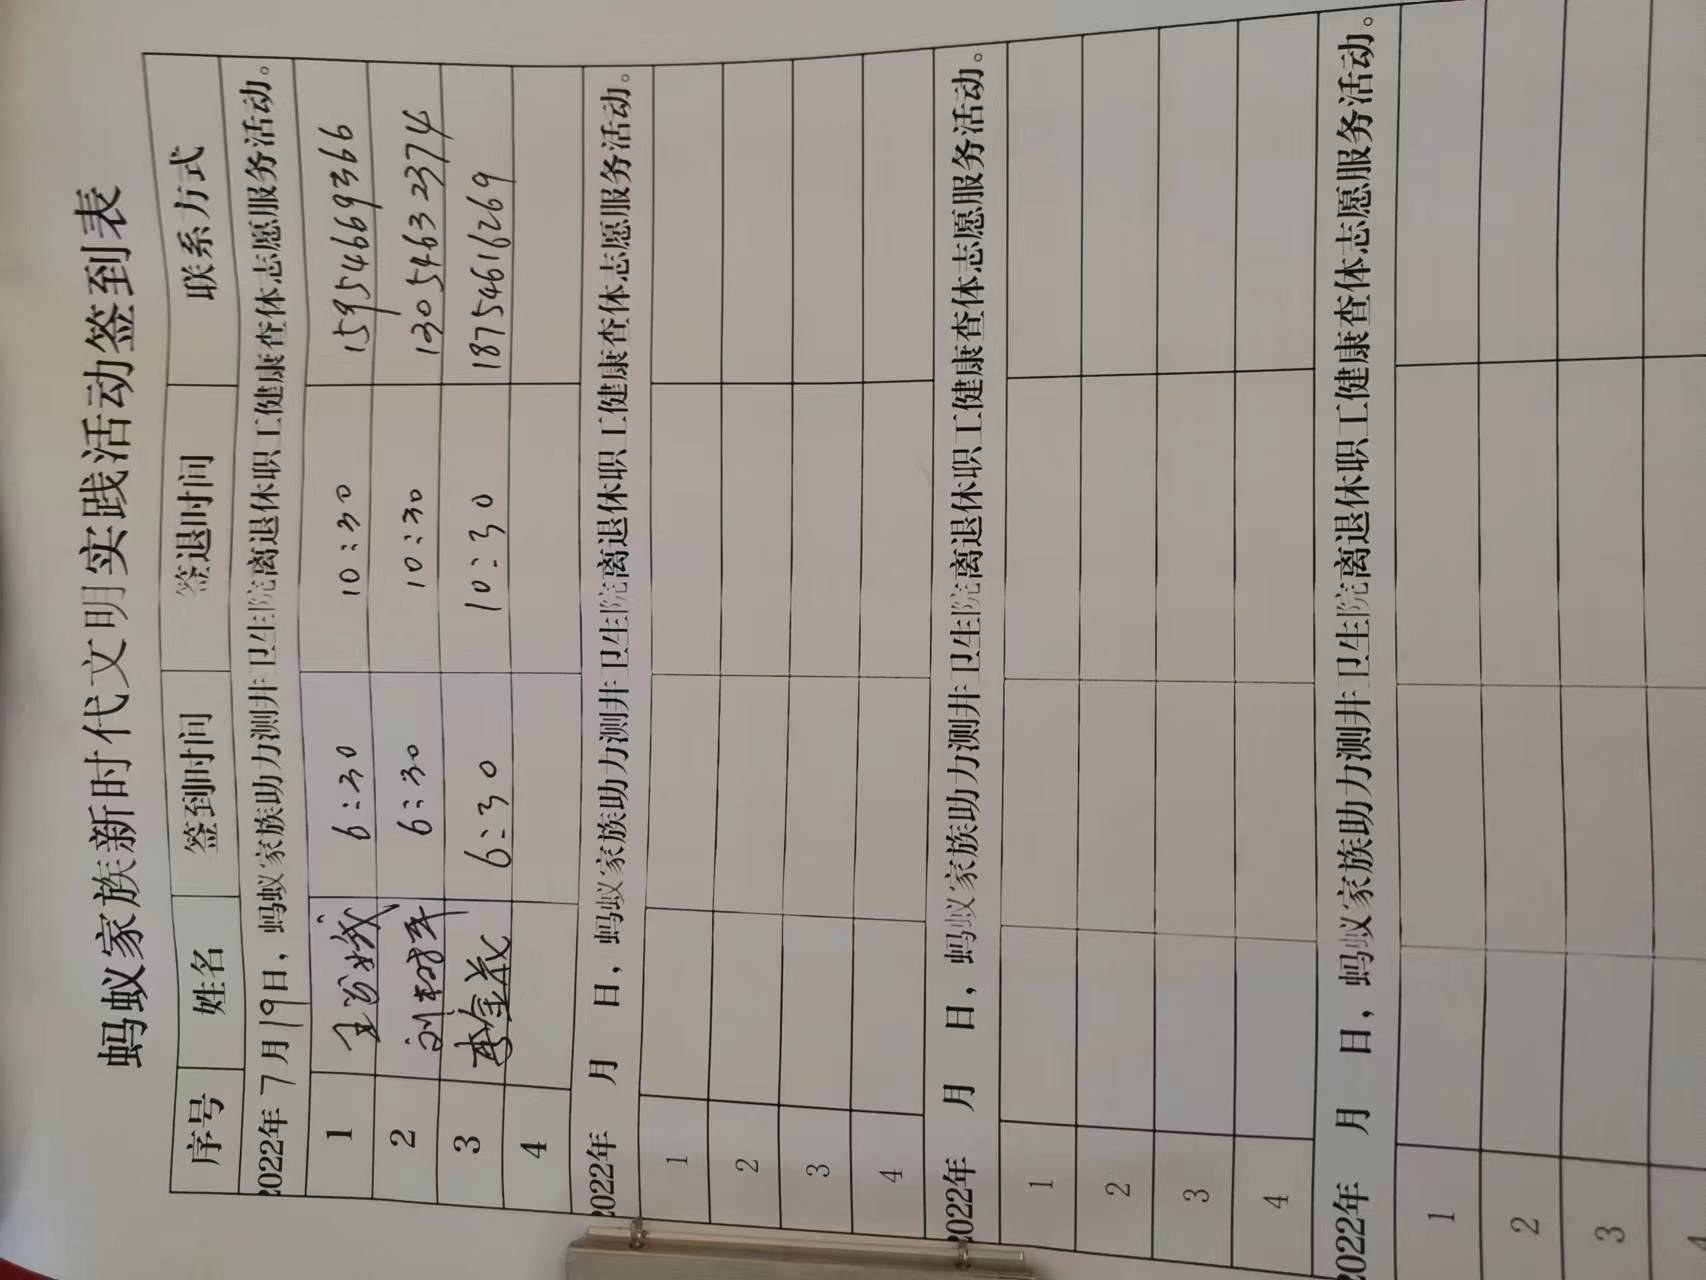 蚂蚁家族新时代文明实践活动签到表
序号 姓名 签到时间 签退时间 联系方式
2022年7月19日，蚂蚁家族助力测井卫生院离退休职工健康查体志愿服务活动。
1 6:30 10:30 15954669366
2 6:30 10:30 13054632374
3 李金芝 6:30 10:30 18754616269
4
2022年 月 日，蚂蚁家族助力测井卫生院离退休职工健康查体志愿服务活动。
1
2
3
4
2022年 月 日，蚂蚁家族助力测井卫生院离退休职工健康查体志愿服务活动。
1
2
3
4
2022年 月 日，蚂蚁家族助力测井卫生院离退休职工健康查体志愿服务活动。
1
2
3
4